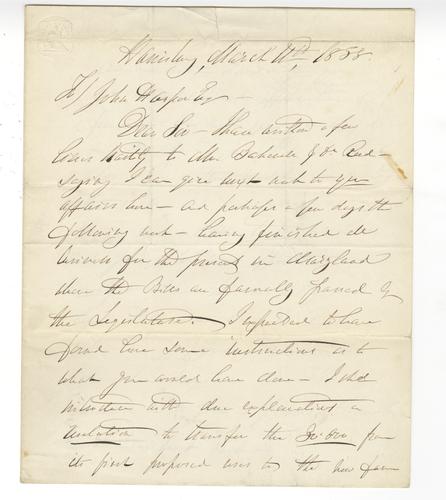 March 11th, 1858
John Harper Esq
Dear Sir - I have written a few
lines hastily to Mr. Bakewell &
saying I can give next week to your
affairs here - and perhaps a few days the
following week - having finished all
business for the present in Maryland
where the Bills are formally passed by
the Legislature. I expected to have
found here some instructions as to
what you would have done - I shd
introduce with due explanations a
resolution to transfer the from
its first proposed uses to the new